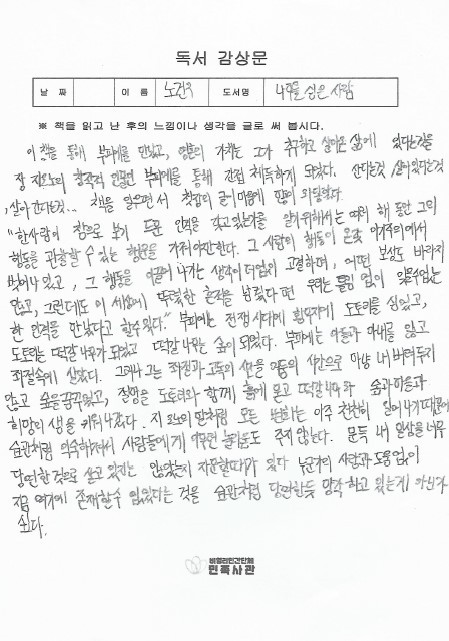 독서 감상문
날 짜 이 름 노건우 도서명 나무를 심은 사람
※ 책을 읽고 난 후의 느낌이나 생각을 글로 써 봅시다.
이 책을 통해 부피에를 만났고, 영혼의 가치는 그가 추구하고 살아온 삶에 있다는것을
장 지오노의 창작적 인물인 부피에를 통해 간접 체득하게 되었다. 산다는것 살아있다는것
, 살아 간다는것... 책을 읽으면서 첫장의 글귀 마음에
"한사람이 참으로 보기 드문 인격을 갖고있는가를 알기 위해서는 여러 해 동안 그의
행동을 관찰할 수 있는 행운을 가져야만한다. 그 사람의 행동이 온갖 이기주의에서
벗어나 있고, 그 행동을 이끌어 나가는 생각이 더없이 고결하며, 어떤 보상도 바라지
않고, 그런데도 이 세상에 뚜렷한 흔적을 남겼다면 우리는 틀림 없이 잊을수없는
한 인격을 만났다고 할수있다." 부피에는 전쟁시대에 황무지에 도토리를 심었고,
도토리는 떡갈나무가 되었고 떡갈나무는 숲이 되었다. 부피에는 아들과 아내를 잃고
좌절속에 살았다. 그러나 그는 좌절과 고독의 시간을 의 시간으로 마냥 내버려두지
않고 숲을 꿈꾸었고, 절망을 도토리와 함께 흙에 묻고 떡갈나무와 숲과 마을과
희망의 샘을 키워나갔다. 지오노의 말처럼 모든 변화는 아주 천천히 일어나기때문에
습관처럼 익숙해져서 사람들에게 아무런 놀라움도 주지 않는다. 문득 내 일상을 너무
당연한것으로 살고 있지는 않았는지 자문할때가 있다 누군가의 사랑과 도움 없이
지금 여기에 존재할수 없었다는 것을 습관처럼 당연한듯 망각 하고 있는게 아닌가
싶다.
비영리민간단체
민족사관